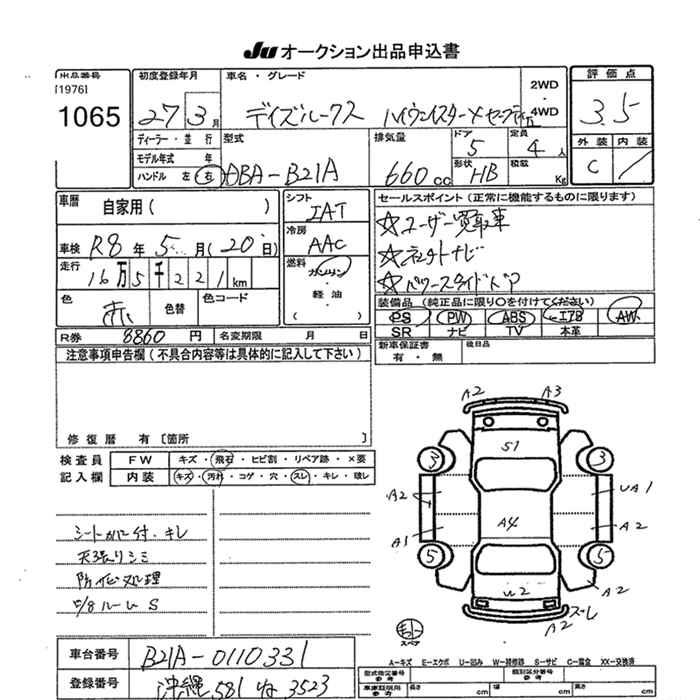 JU オークション出品申込書
出品番号
[1976]
1065
初度登録年月
27年3月
車名・グレード
デイズルークス ハイウェイスターXセーフティⅡ
2WD
4WD
評価点
3.5
外装 内装
C
ディーラー・並行
モデル年式 年
ハンドル 左 右
型式
DBA-B21A
排気量
660cc
ドア
5
形状
HB
定員
4人
積載
Kg
車歴
自家用( )
車検 R8年5月(20日)
走行
16万5千221km
色
赤
色替
色コード
シフト
IAT
冷房
AAC
燃料
ガソリン
・
軽油
( )
セールスポイント(正常に機能するものに限ります)
☆ユーザー買取車
☆ナビ
☆パワースライドドア
装備品(純正品に限り〇を付けてください)
PS PW ABS エアB AW
SR ナビ TV 本革
R券 8860円
名変期限 月 日
新車保証書
有・無
後日品
注意事項申告欄(不具合内容等は具体的に記入して下さい)
修復歴 有〔箇所 〕
検査員
記入欄
FW キズ・飛石・ヒビ割・リペア跡・×要
内装 キズ・汚れ・コゲ・穴・スレ・キレ・破レ
シートカバー付.キレ
天張りシミ
防サビ処理
ルームS
A2 A3
S1
3 3
A2 UA1
A4
A1 A2
5 5
W2 A2
A2 スレ
スペア
A-キズ E-エクボ U-凹み W-補修跡 S-サビ C-腐食 XX-交換済
車台番号
B21A-0110331
登録番号
沖縄 581 ね 3523
型式指定番号
類別区分番号
長さ cm 幅 cm 高さ cm